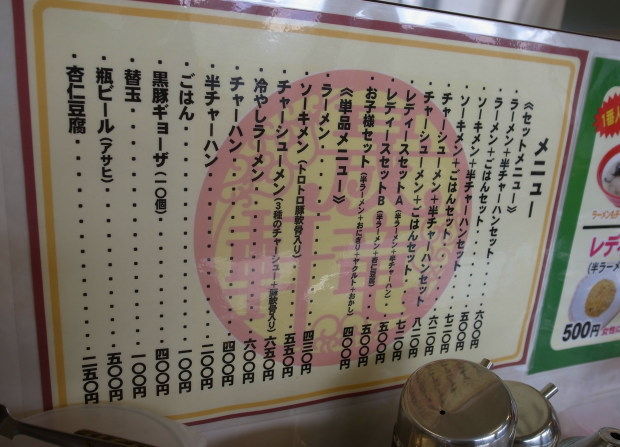 メニュー
《セットメニュー》
・ラーメン+半チャーハンセット・・・・・六〇〇円
・ラーメン+ごはんセット・・・・・・・五〇〇円
・ソーキメン+半チャーハンセット・・・・七二〇円
・ソーキメン+ごはんセット・・・・・・六二〇円
・チャーシューメン+半チャーハンセット・八二〇円
・チャーシューメン+ごはんセット・・・七二〇円
・レディースセットA(半ラーメン+半チャーハン)・・五〇〇円
・レディースセットB(半ラーメン+杏仁豆腐)・・・五〇〇円
・お子様セット(半ラーメン+おにぎり+ヤクルト+おかし)・四〇〇円
《単品メニュー》
・ラーメン・・・・・・・・・・・・四三〇円
・ソーキメン(トロトロ豚軟骨入り)・・・・五五〇円
・チャーシューメン(3種のチャーシュー+豚軟骨入り)・六五〇円
・冷やしラーメン・・・・・・・・・・六〇〇円
・チャーハン・・・・・・・・・・・四〇〇円
・半チャーハン・・・・・・・・・・二〇〇円
・ごはん・・・・・・・・・・・・・一〇〇円
・黒豚ギョーザ(一〇個)・・・・・・・四〇〇円
・替玉・・・・・・・・・・・・・・一〇〇円
・瓶ビール(アサヒ)・・・・・・・・・五〇〇円
・杏仁豆腐・・・・・・・・・・・・二五〇円
1番人
レデ
(半ラー
500円